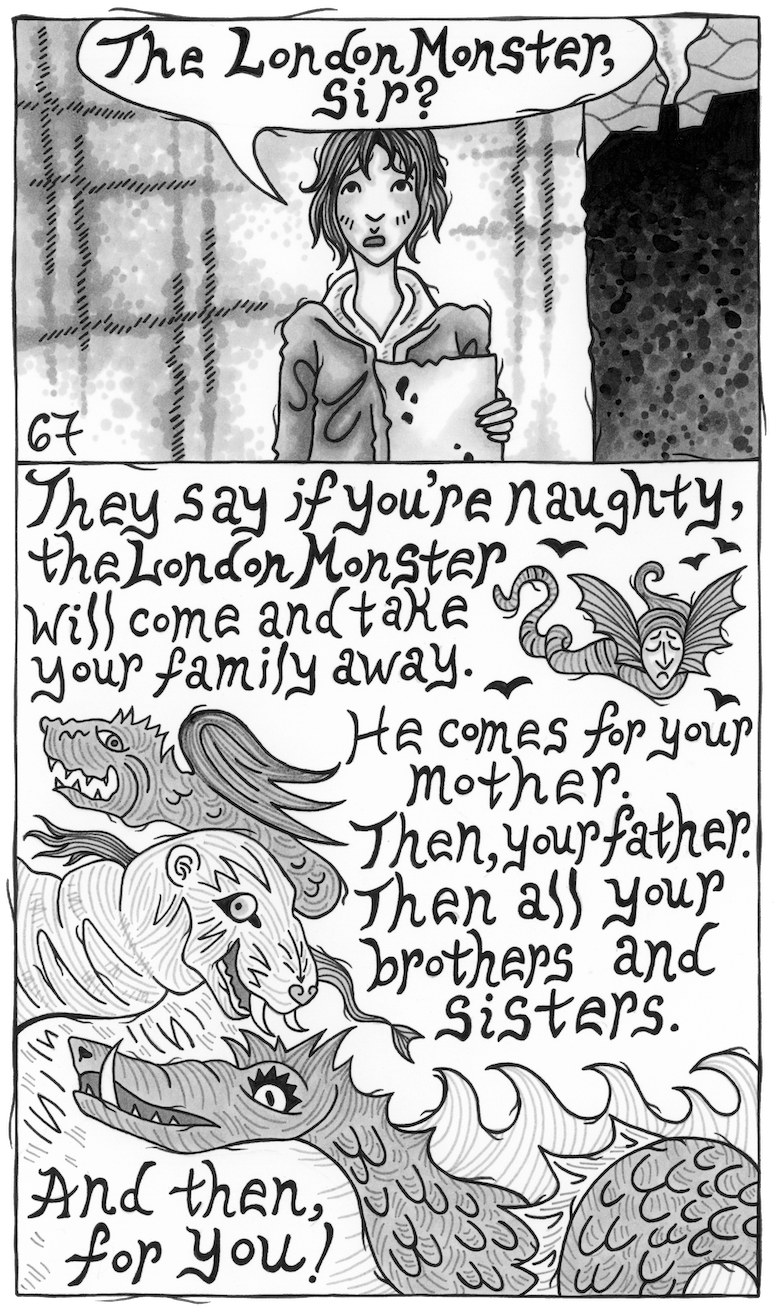 The London Monster,
Sir?
67
They say if you're naughty,
the London Monster
will come and take
your family away.
He comes for your
mother.
Then, your father.
Then all your
brothers and
sisters.
And then,
for you!